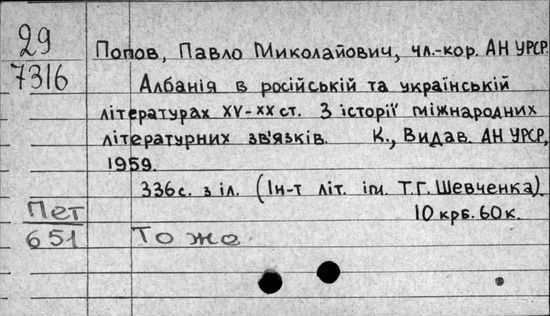 29
7316
Попов, Павло Миколайович, чл.-кор. АН УРСР.
Албанія в російській та українській
літературах XV-XX ст. З історії міжнародних
літературних зв'язків. К., Видав. АН УРСР,
1959.
336с. з іл. (Ін-т літ. ім. Т.Г. Шевченка)
10 крб. 60 к.
Пет
651
То же